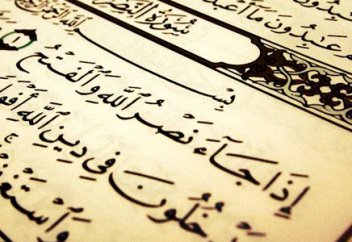 عَٰبِدُونَ مَآ أَعْبُدُ
سُورَةُ ٱلنَّصْرِ
بِسْ
إِذَا جَآءَ نَصْرُ ٱللَّهِ وَٱلْفَتْحُ
خُلُونَ فِى دِينِ ٱللَّهِ أَفْوَا
وَٱسْتَغْفِ